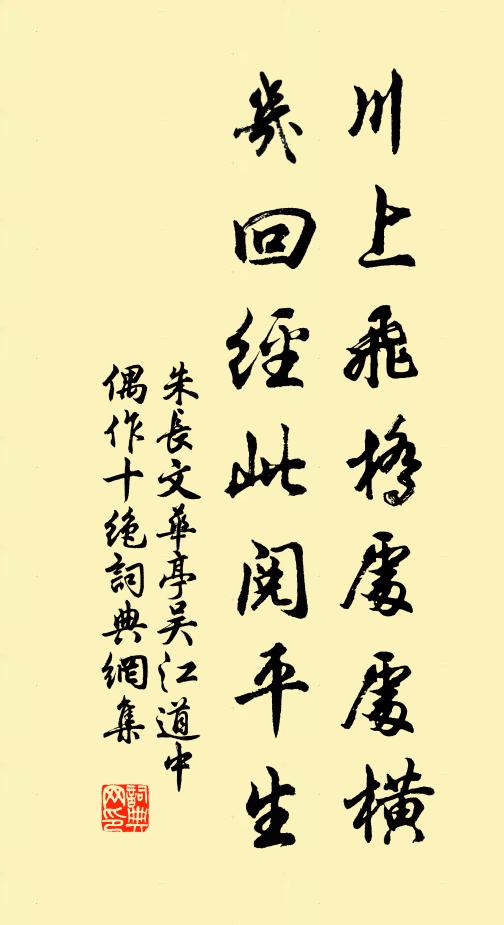 川上飛橋處處橫
幾回經此閱平生
朱長文華亭吳江道中
偶作十絕詞典網集
詞典
网印